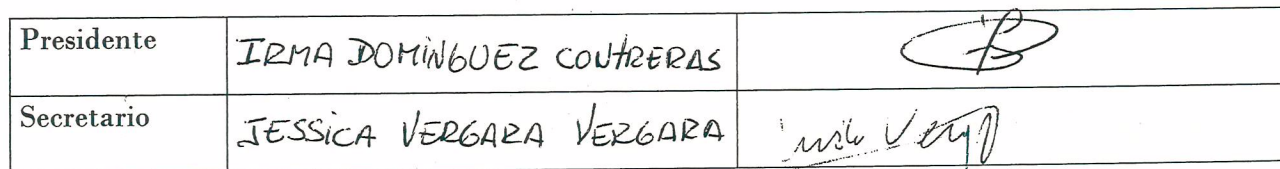 Presidente IRMA DOMINGUEZ CONTRERAS
Secretario JESSICA VERGARA VERGARA